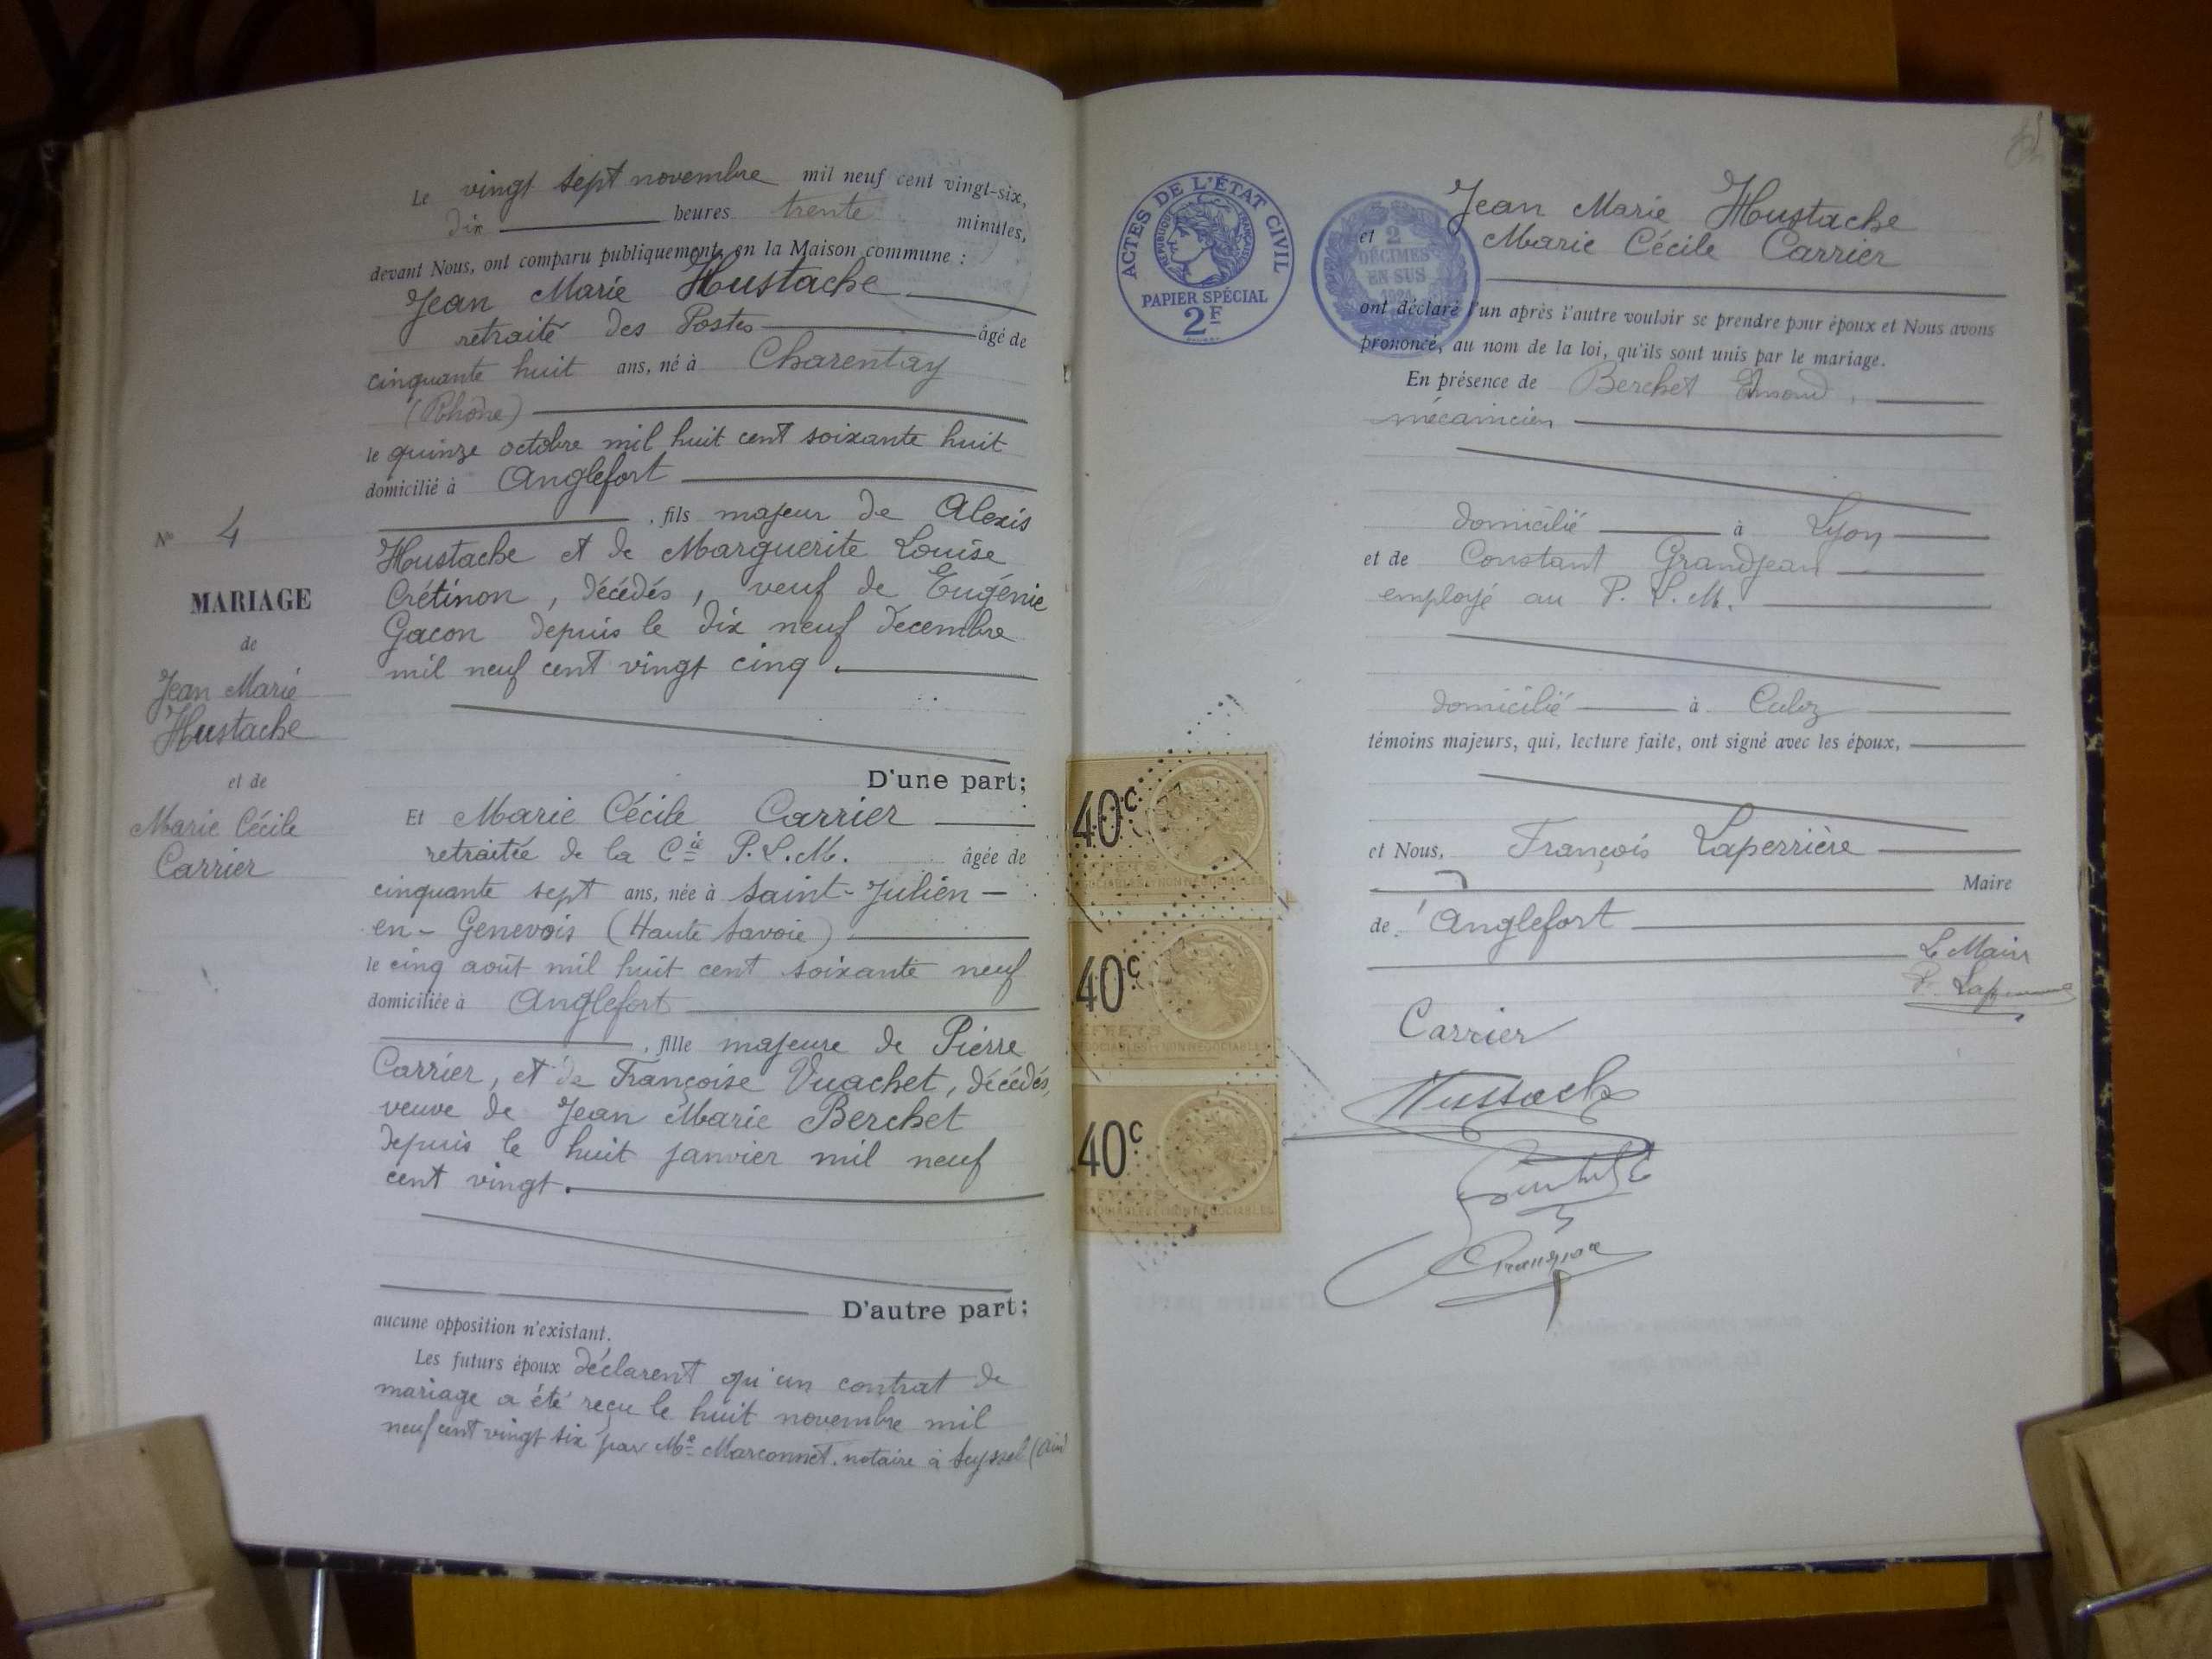 Le vingt sept novembre mil neuf cent vingt-six,
dix heures trente minutes,
devant Nous, ont comparu publiquement en la Maison commune :
Jean Marie Hustache
retraité des Postes âgé de
cinquante huit ans, né à Charentay
(Rhône)
le quinze octobre mil huit cent soixante huit
domicilié à Anglefort
, fils majeur de Alexis
Hustache et de Marguerite Louise
Crétinon, décédés, veuf de Eugénie
Gacon depuis le dix neuf décembre
mil neuf cent vingt cinq.
N° 4
MARIAGE
de
Jean Marie
Hustache
et de
Marie Cécile
Carrier
D'une part;
Et Marie Cécile Carrier
retraitée de la Cie P.L.M. âgée de
cinquante sept ans, née à Saint-Julien-
en-Genevois (Haute Savoie)
le cinq août mil huit cent soixante neuf
domiciliée à Anglefort
, fille majeure de Pierre
Carrier, et de Françoise Vuachet, décédés,
veuve de Jean Marie Berchet
depuis le huit janvier mil neuf
cent vingt.
D'autre part;
aucune opposition n'existant.
Les futurs époux déclarent qu'un contrat de
mariage a été reçu le huit novembre mil
neuf cent vingt six par Me Marconnet, notaire à Seyssel (Ain)
ACTES DE L'ÉTAT CIVIL
RÉPUBLIQUE FRANÇAISE
PAPIER SPÉCIAL
2F
2
DÉCIMES
EN SUS
Jean Marie Hustache
et Marie Cécile Carrier
ont déclaré l'un après l'autre vouloir se prendre pour époux et Nous avons
prononcé, au nom de la loi, qu'ils sont unis par le mariage.
En présence de Berchet
mécanicien
domicilié à Lyon
et de Constant Grandjean
employé au P.L.M.
domicilié à Culoz
témoins majeurs, qui, lecture faite, ont signé avec les époux,
et Nous, François Laperrière
Maire
de Anglefort
Le Maire
Carrier
Hustache
40c
40c
40c